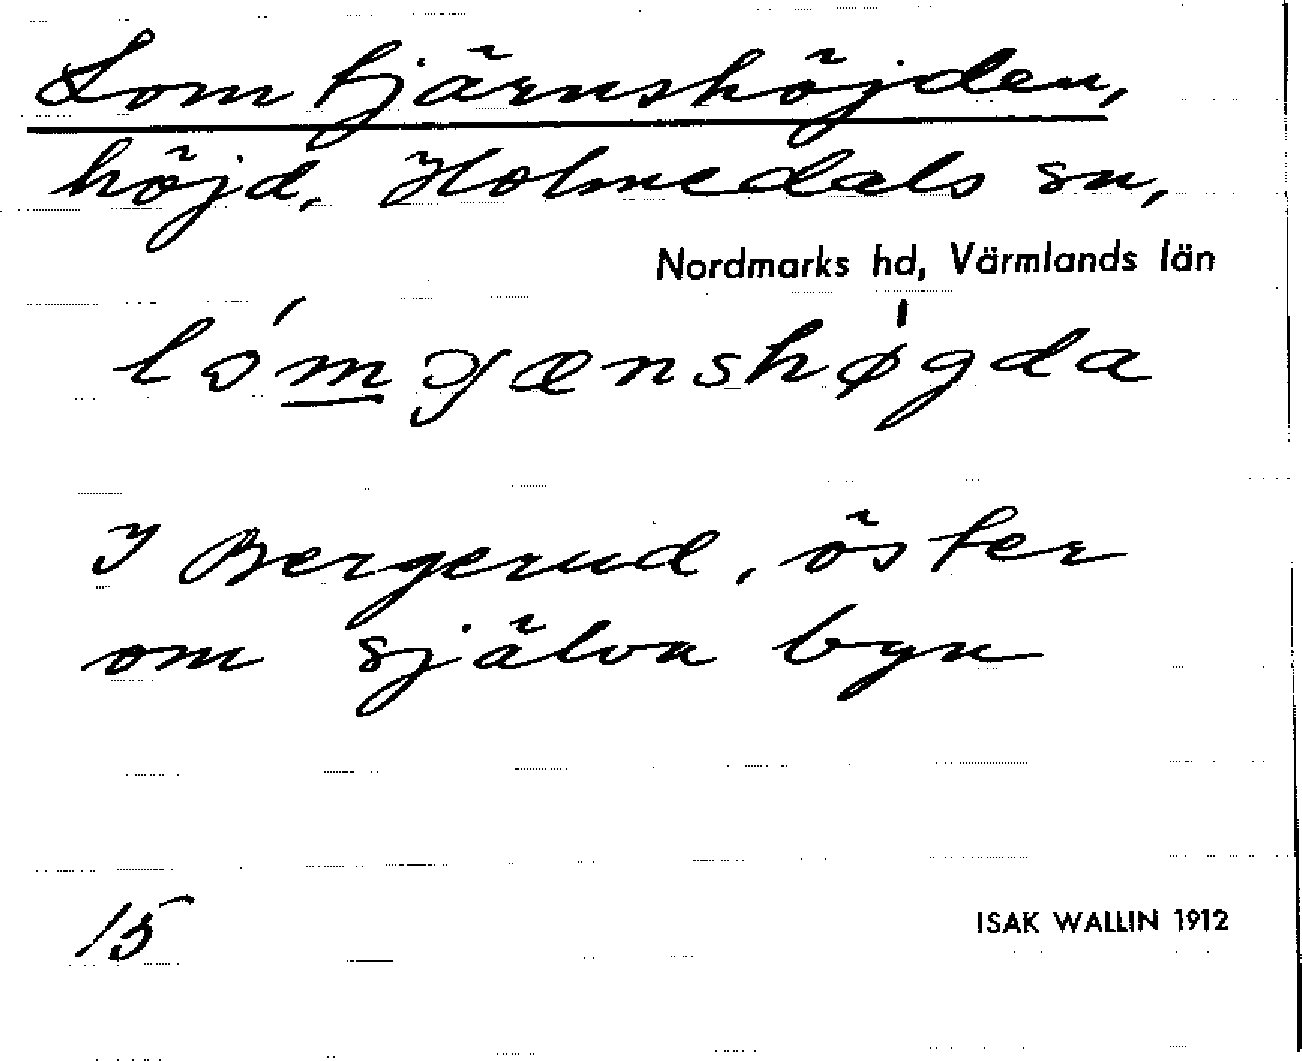 Lomtjärnshöjden,
höjd, Holmedals sn,
Nordmarks hd, Värmlands län
lómɔɟænshøgda
I Bergerud, öster
om själva byn
15
ISAK WALLIN 1912